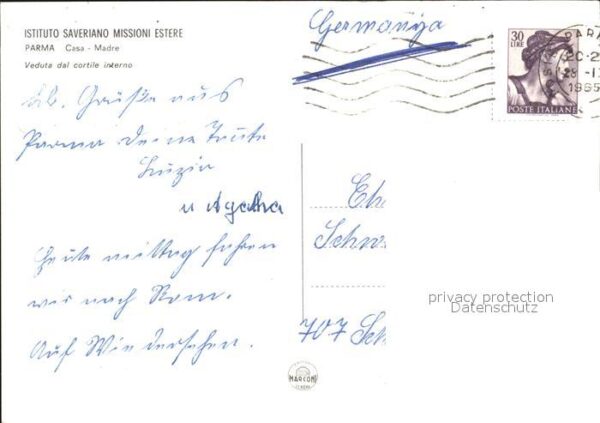 ISTITUTO SAVERIANO MISSIONI ESTERE
PARMA Casa - Madre
Veduta dal cortile interno
Germaniya
30
LIRE
POSTE ITALIANE
PARMA
1965
Lb. Grüße aus
Parma Deine Tante
Luzia
u Agatha
Heute mittag fahren
wir nach Rom.
Auf Wiedersehen.
Eh
Schw
707 Sch
privacy protection
Datenschutz
MARCONI